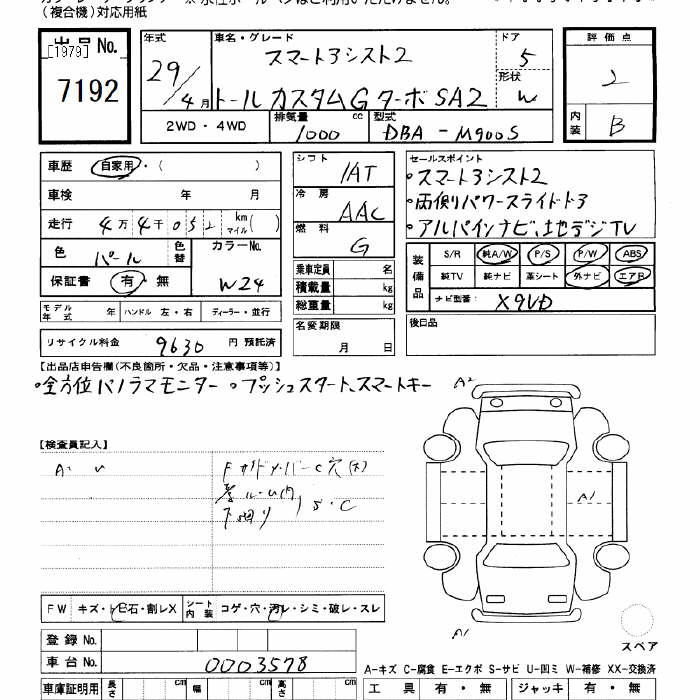 (複合機)対応用紙
出品 No.
[1979]
7192
年式
29/4月
車名・グレード
スマートアシスト2
トールカスタムG ターボSA2
ドア
5
形状
W
評価点
2
内装
B
2WD・4WD
排気量
1000
cc
型式
DBA-M900S
車歴
自家用・(　)
車検
年　月
走行
4万4千052
km
マイル
(　)
色
パール
色替
カラーNo.
W24
保証書
有・無
モデル年式
年
ハンドル 左・右
ディーラー・並行
リサイクル料金
9630
円 預託済
シフト
IAT
冷房
AAC
燃料
G
乗車定員
名
積載量
kg
総重量
kg
名変期限
月　日
セールスポイント
・スマートアシスト2
・両側パワースライドドア
・アルパインナビ、地デジTV
装備品
S/R
純A/W
P/S
P/W
ABS
純TV
純ナビ
革シート
外ナビ
エアB
ナビ型番:
X9VD
後日品
【出品店申告欄(不良箇所・欠品・注意事項等)】
・全方位パノラマモニター ・プッシュスタート、スマートキー
【検査員記入】
下回り
S・C
A2
A1
A1
スペア
FW
キズ・ト
石・割レX
シート内装
コゲ・穴・汚レ・シミ・破レ・スレ
登録 No.
車台 No.
0003578
A-キズ C-腐食 E-エクボ S-サビ U-凹ミ W-補修 XX-交換済
車庫証明用
長さ
cm
幅
cm
高さ
cm
工具
有・無
ジャッキ
有・無